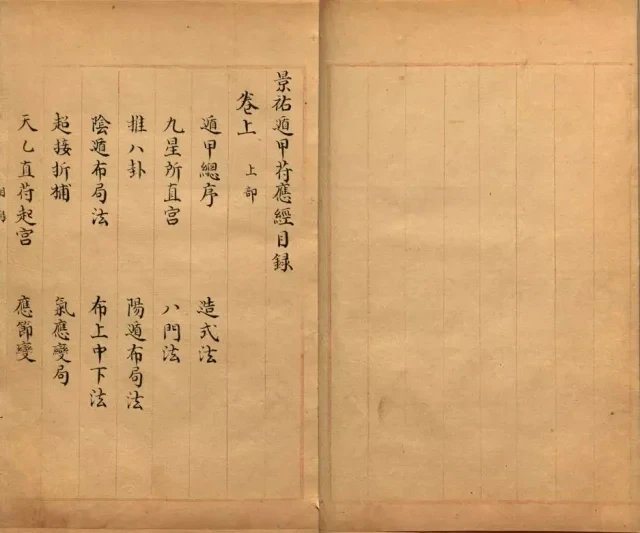 景祐遁甲苻應經目録
卷上 上部
遁甲總序 造式法
九星所直宮 八門法
推八卦 陽遁布局法
陰遁布局法 布上中下法
超接折捕 氣應變局
天乙直苻起宮 應節變